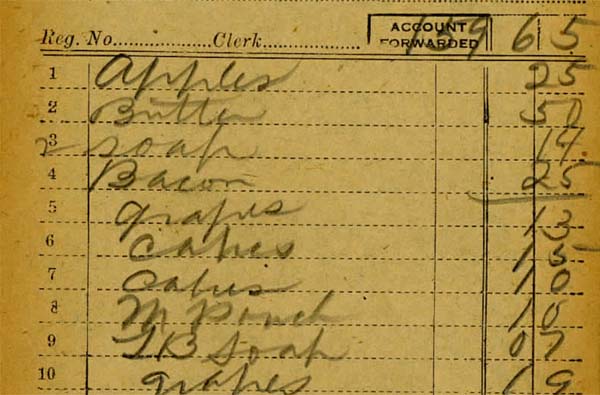 Reg. No. Clerk ACCOUNT FORWARDED 159 65
1 Apples 25
2 Butter 50
3 2 soap 14
4 Bacon 25
5 grapes 13
6 Cakes 15
7 Cakes 10
8 M Pouch 10
9 T B Soap 07
10 grapes 19